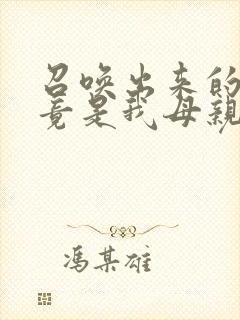 召唤出来的
竟是我母親
冯某雄